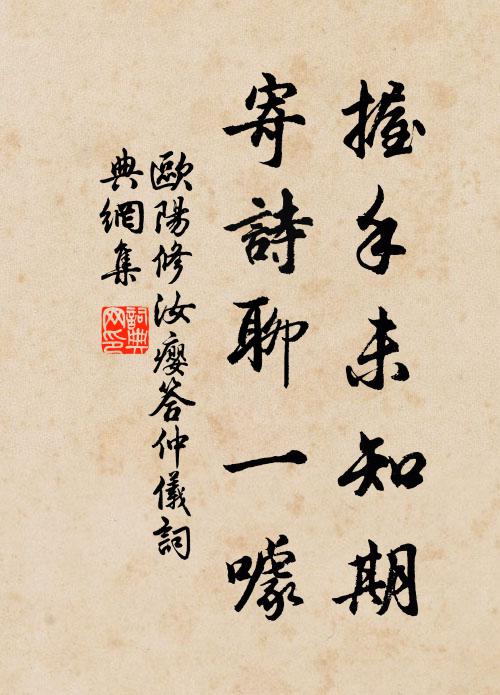 握手未知期
寄詩聊一噱
歐陽修汝癭答仲儀詞
典網集
詞典
网印